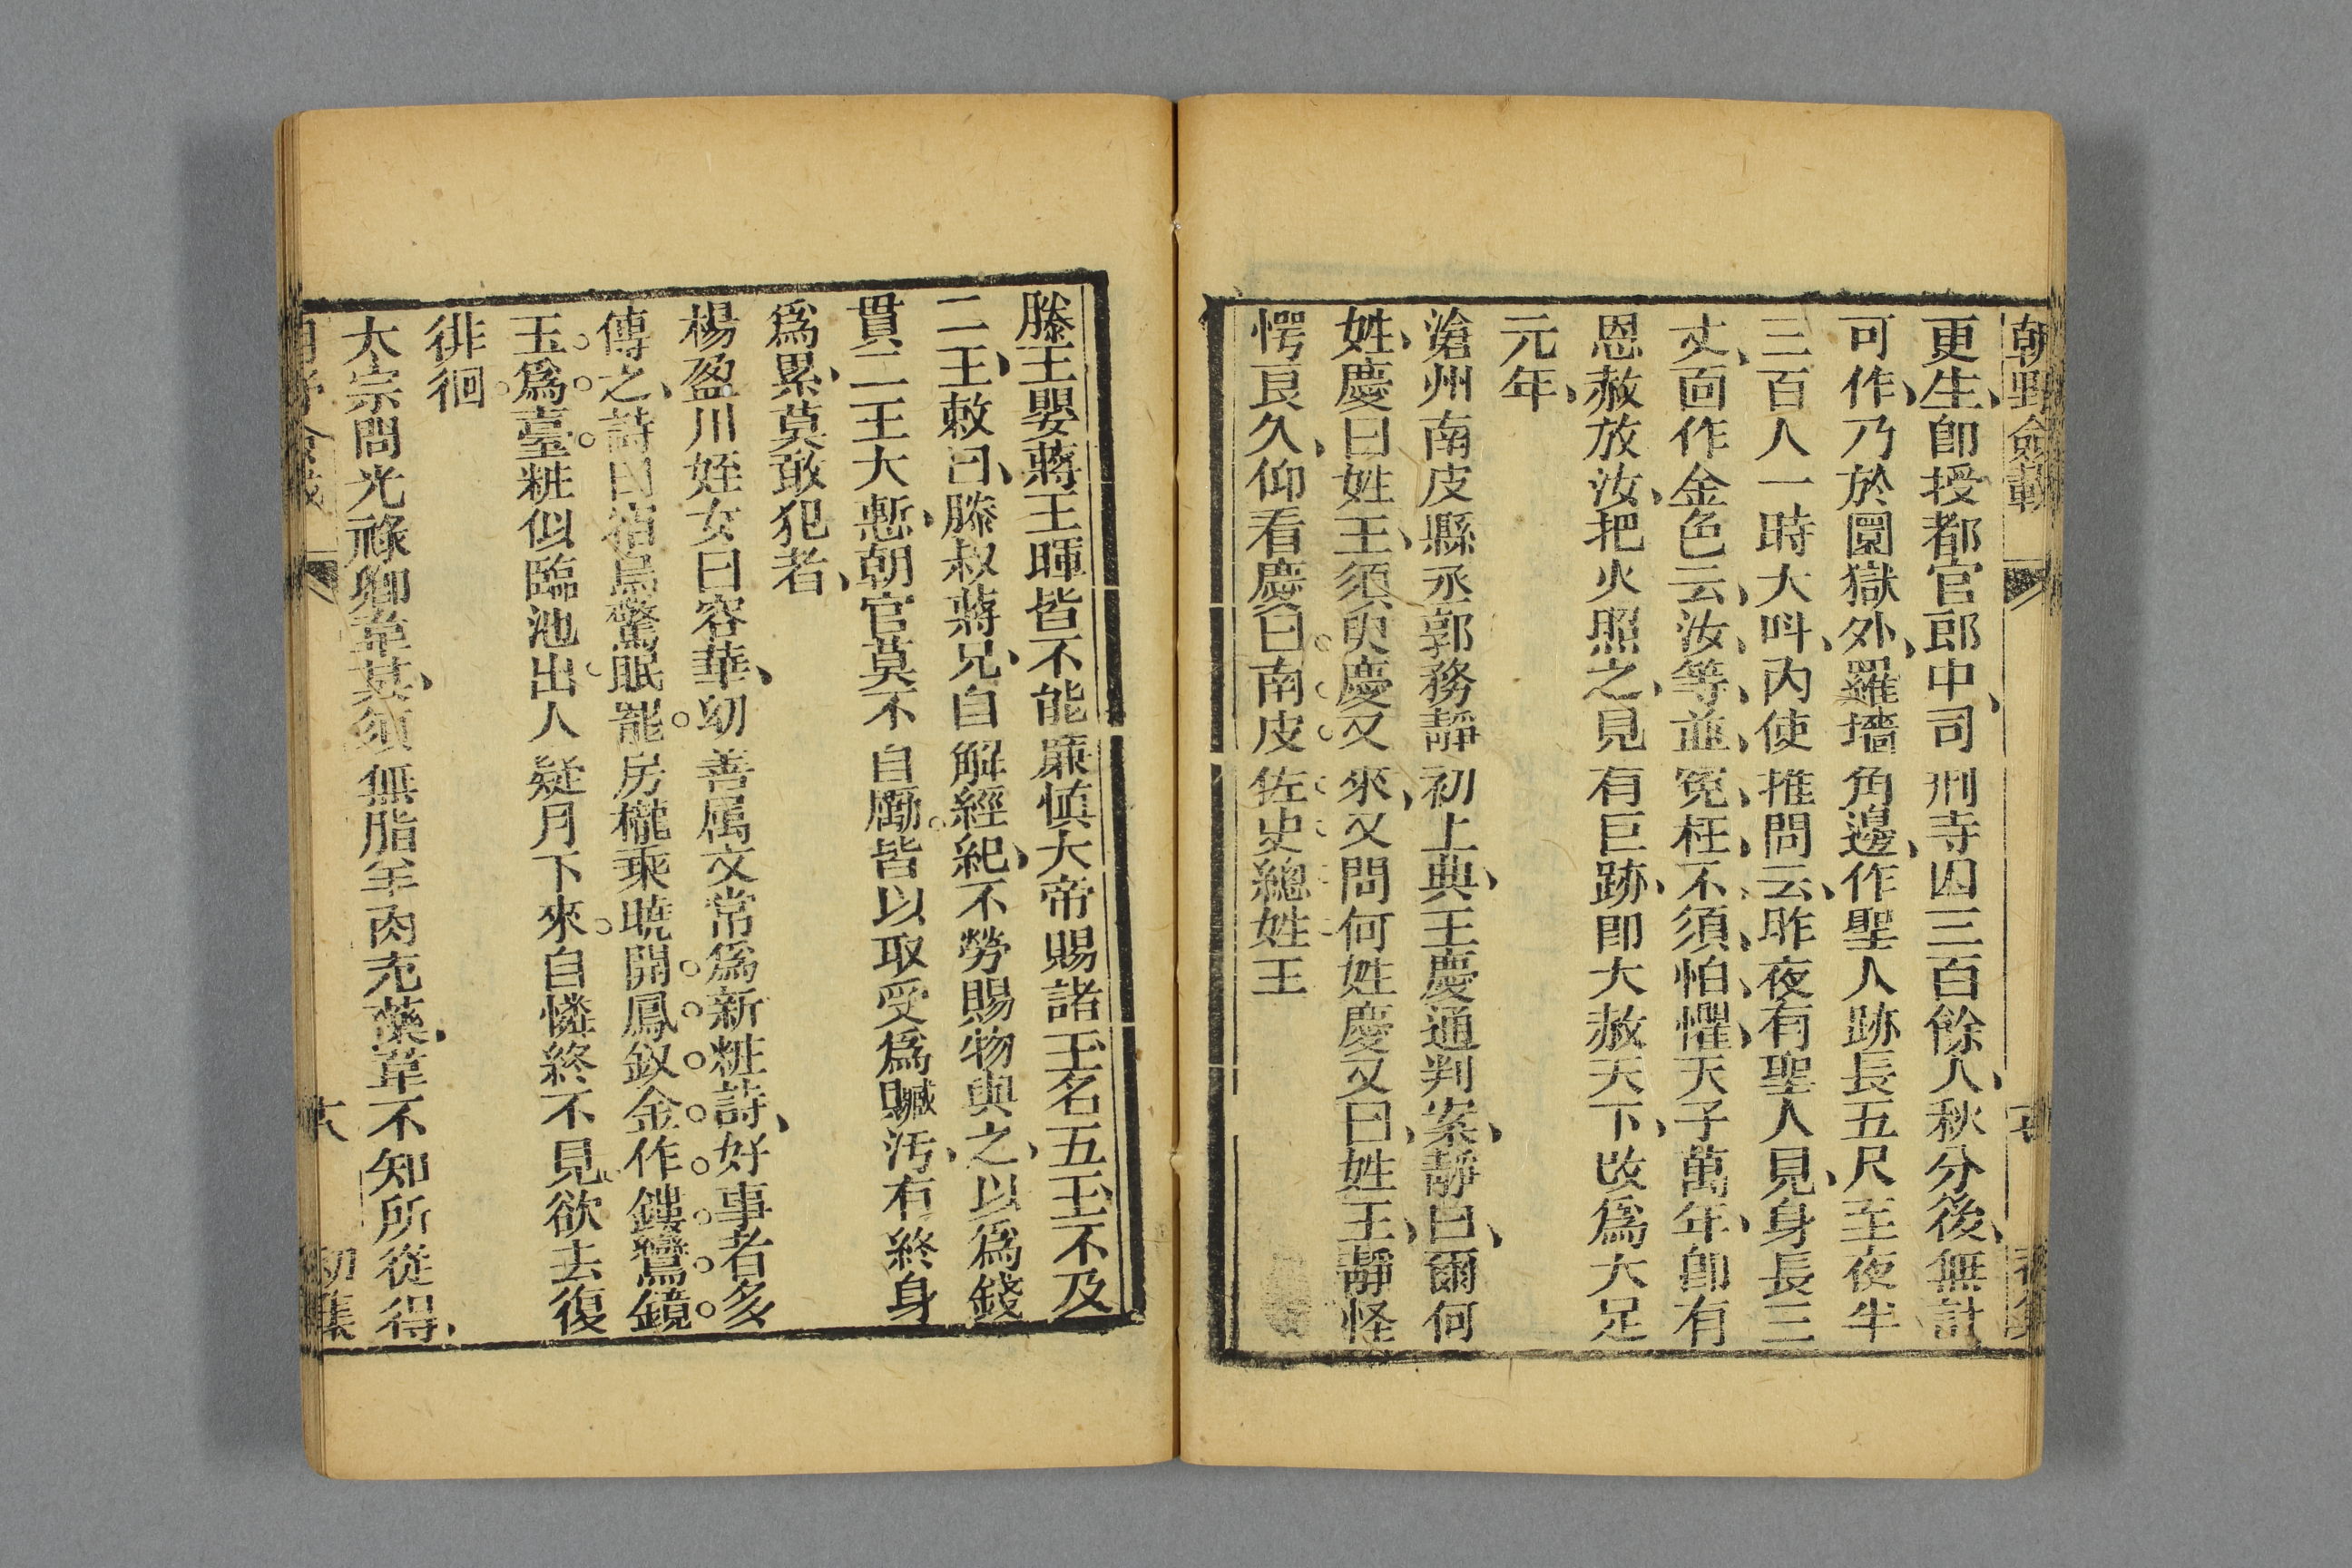 朝野僉載
更生、卽授都官郎中、司刑寺囚三百餘人、秋分後、無計
可作、乃於圜獄外、羅墻角邊、作聖人跡長五尺至夜半
三百人一時大呌、內使推問云、昨夜有聖人見、身長三
丈、面作金色云、汝等、並冤枉、不須怕懼、天子萬年、卽有
恩赦放汝、把火照之、見有巨跡、卽大赦天下、改爲大足
元年、
滄州南皮縣丞郭務靜初上典、王慶通判案、靜曰、爾何
姓、慶曰姓王、須臾慶又來、又問何姓慶又曰、姓王、靜怪
愕良久、仰看慶曰南皮佐史總姓王
滕王嬰蔣王暉皆不能廉愼大帝賜諸王名五王不及
二王、敕曰、滕叔蔣兄、自解經紀、不勞賜物與之、以爲錢
貫二王大慙、朝官莫不自勵皆以取受爲贓汚、有終身
爲累、莫敢犯者、
楊盈川姪女曰容華、幼善屬文常爲新粧詩、好事者多
傳之、詩曰宿鳥驚眠罷房櫳乘曉開鳳釵金作鏤鸞鏡
玉爲臺粧似臨池出人疑月下來自憐終不見欲去復
徘徊
太宗問光祿卿韋某、須無脂羊肉充藥、韋不知所從得、
六
初集